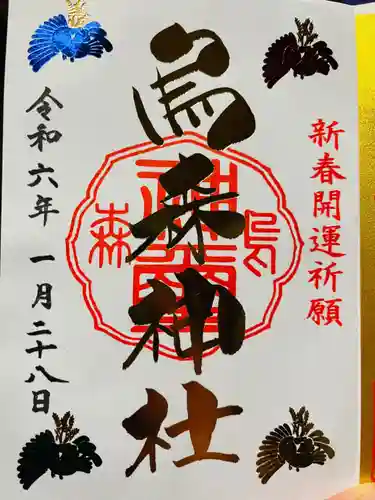 新春開運祈願
烏森神社
烏森
令和六年 一月二十八日